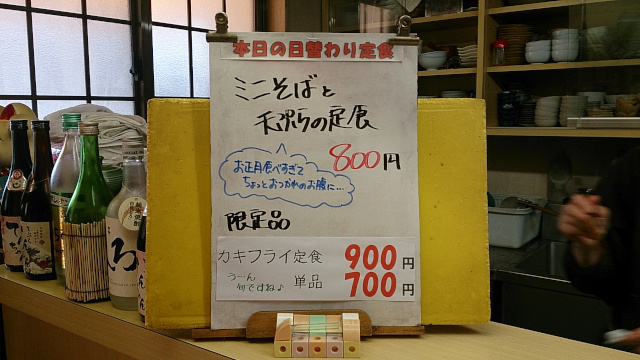 本日の日替わり定食
ミニそばと
天ぷらの定食
800円
お正月食べすぎて
ちょっとおつかれのお腹に…
限定品
カキフライ定食 900円
うーん
旬ですね♪
単品 700円